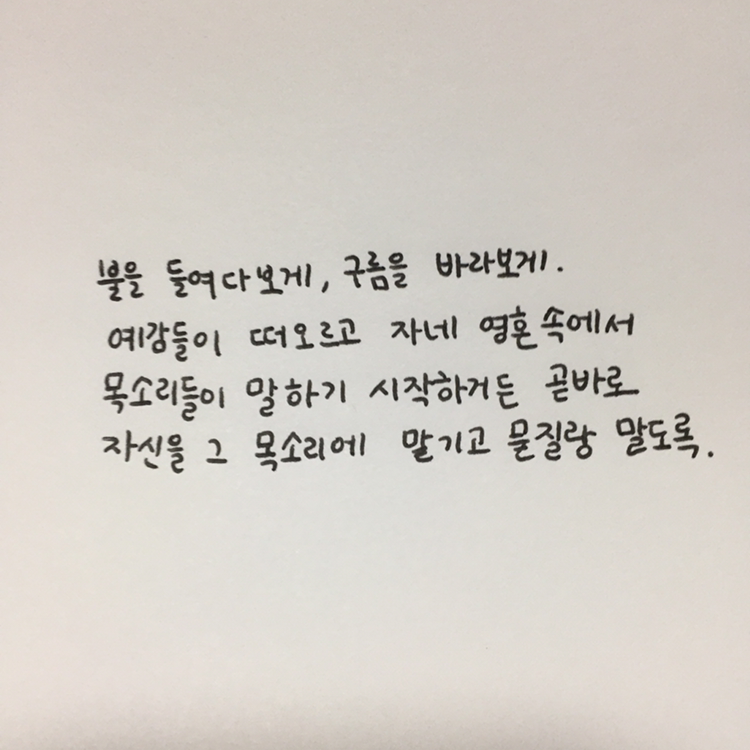 불을 들여다보게, 구름을 바라보게.
예감들이 떠오르고 자네 영혼 속에서
목소리들이 말하기 시작하거든 곧바로
자신을 그 목소리에 맡기고 묻질랑 말도록.